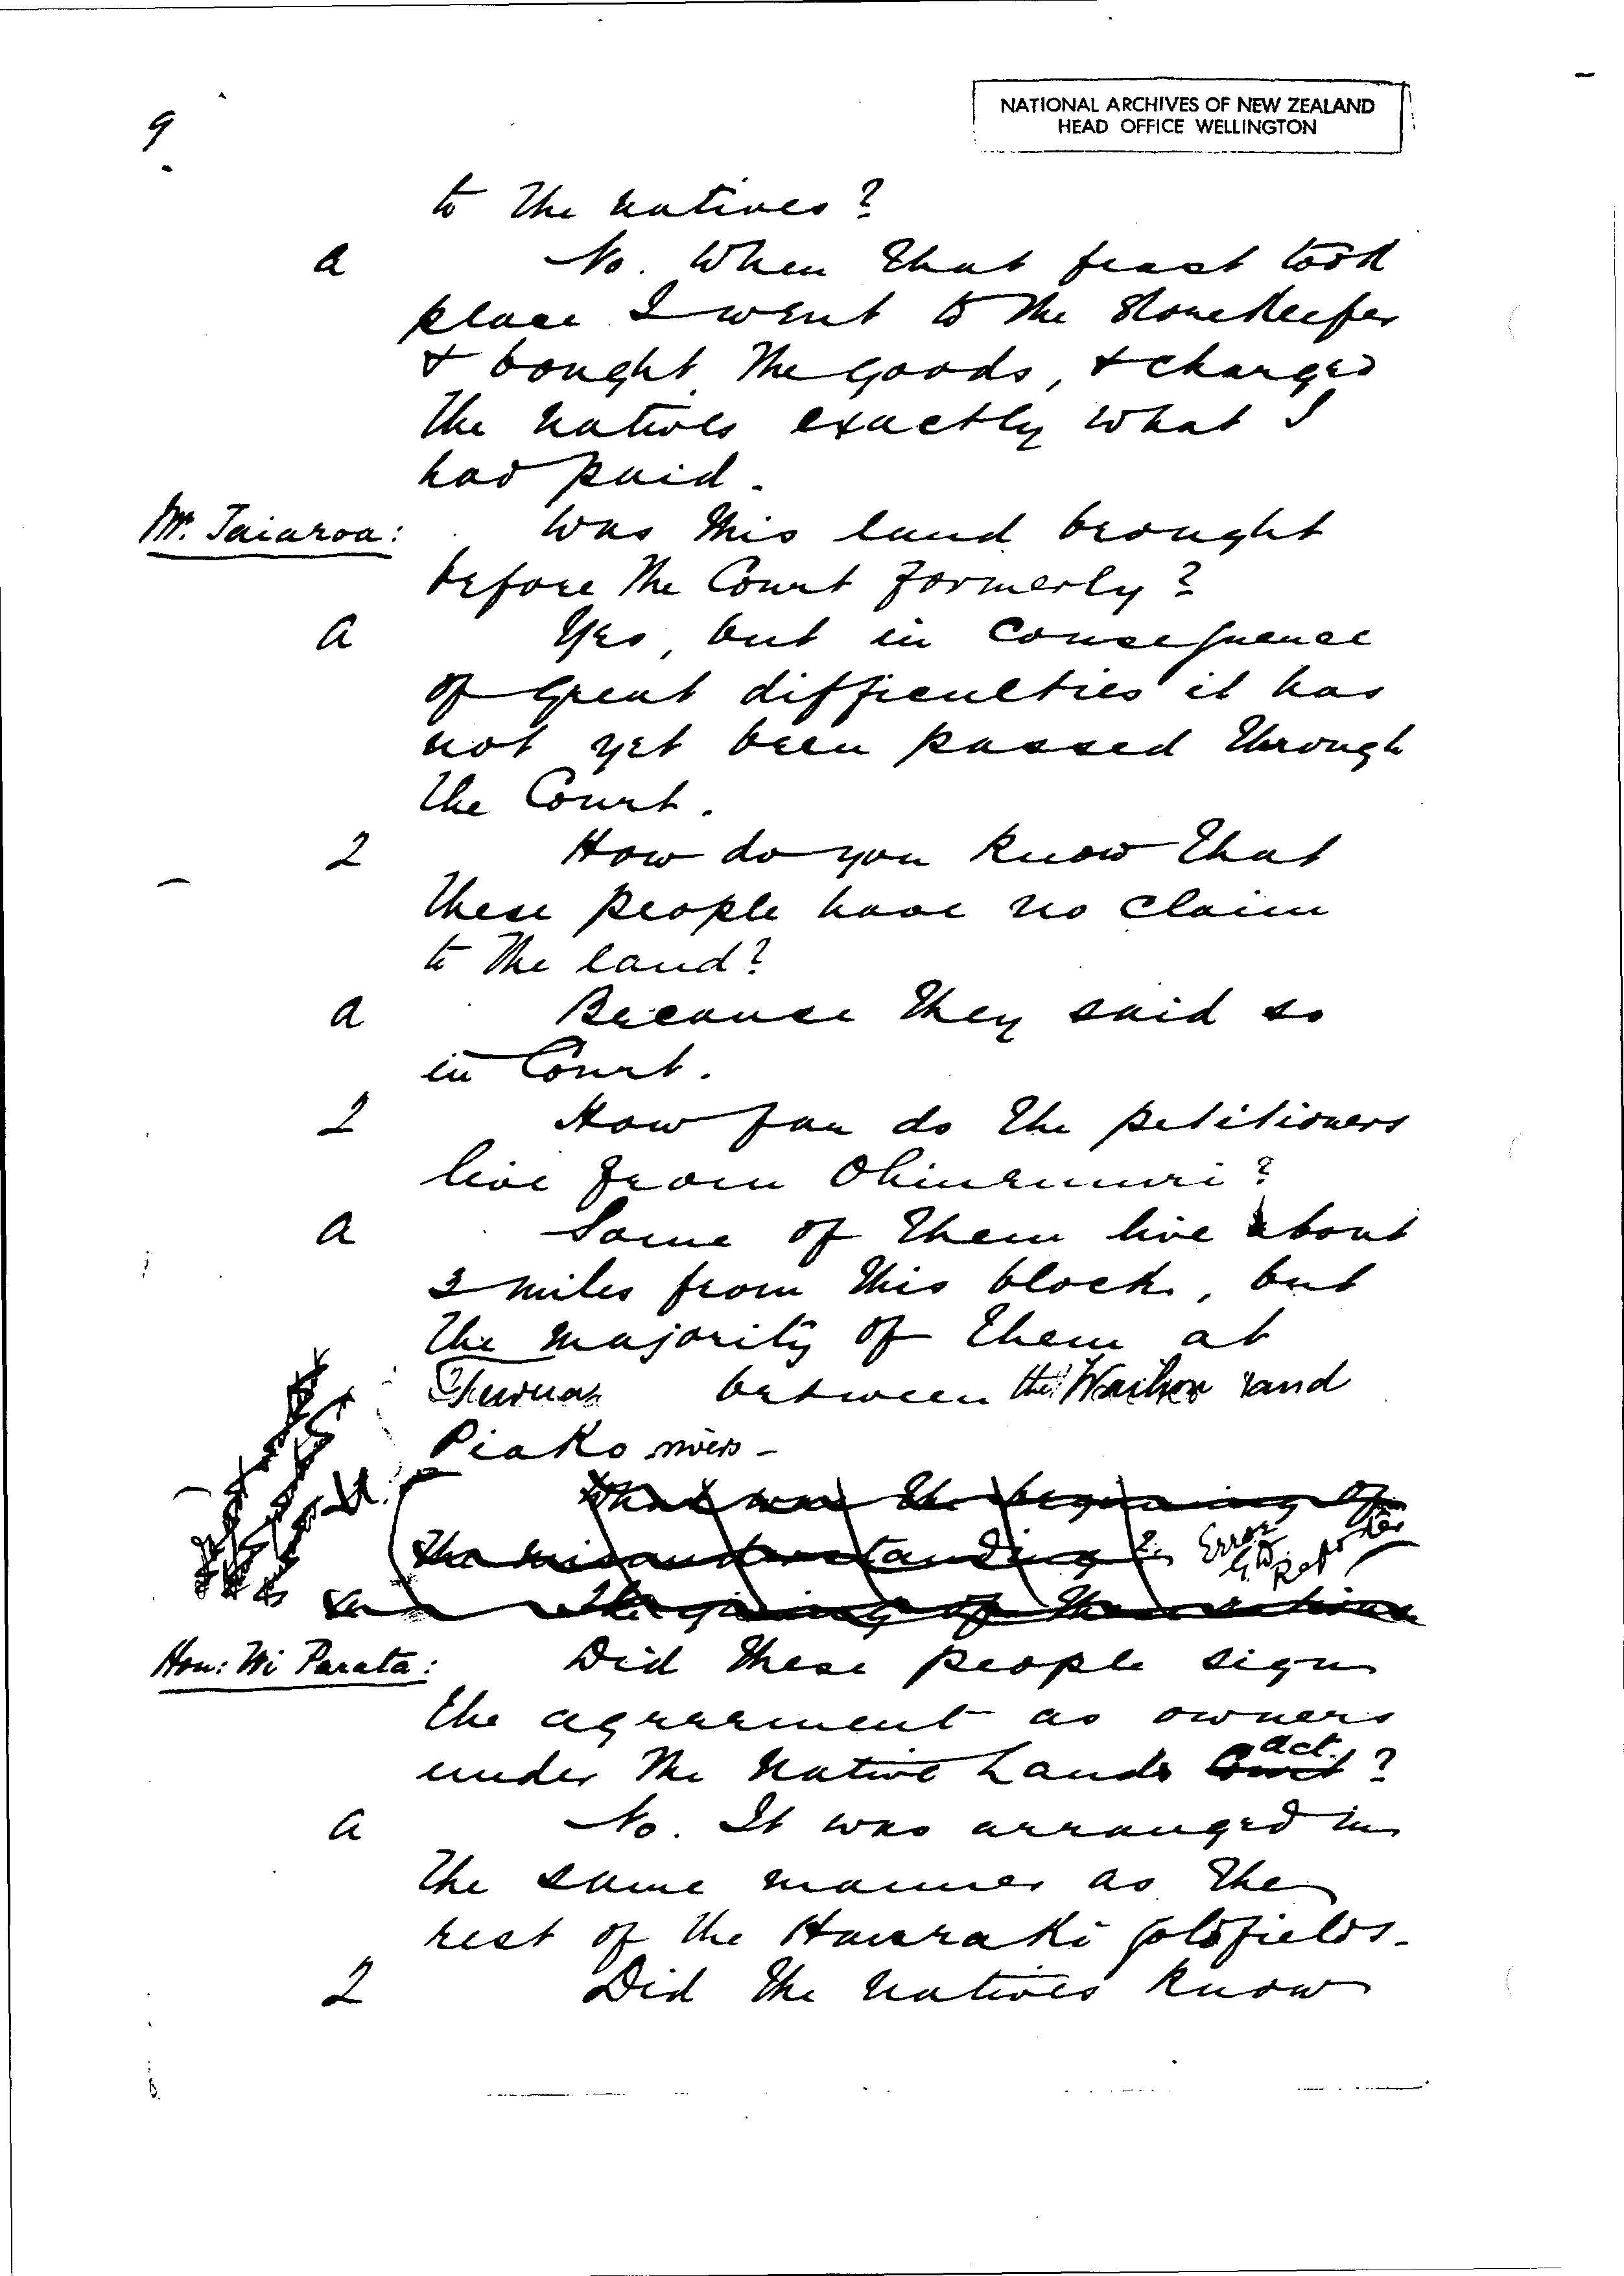 9
NATIONAL ARCHIVES OF NEW ZEALAND
HEAD OFFICE WELLINGTON
to the natives?
a No. When that feast took
place I went to the Storekeeper
& bought the goods, & charged
the natives exactly what I
had paid.
Mr. Taiaroa: Was this land brought
before the Court formerly?
a Yes, but in consequence
of great difficulties it has
not yet been passed through
the Court.
Q How do you know that
these people have no claim
to the land?
a Because they said so
in Court.
Q How far do the petitioners
live from Ohinemuri?
a Some of them live about
3 miles from this block, but
the majority of them at
between the Waihou and
Piako rivers -
What was the beginning of
the misunderstanding?
Error
Reporter
the of the natives
Hon: Wi Parata: Did these people sign
the agreement as owners
under the Native Lands Court act. ?
a No. It was arranged in
the same manner as the
rest of the Hauraki goldfields.
Q Did the natives know